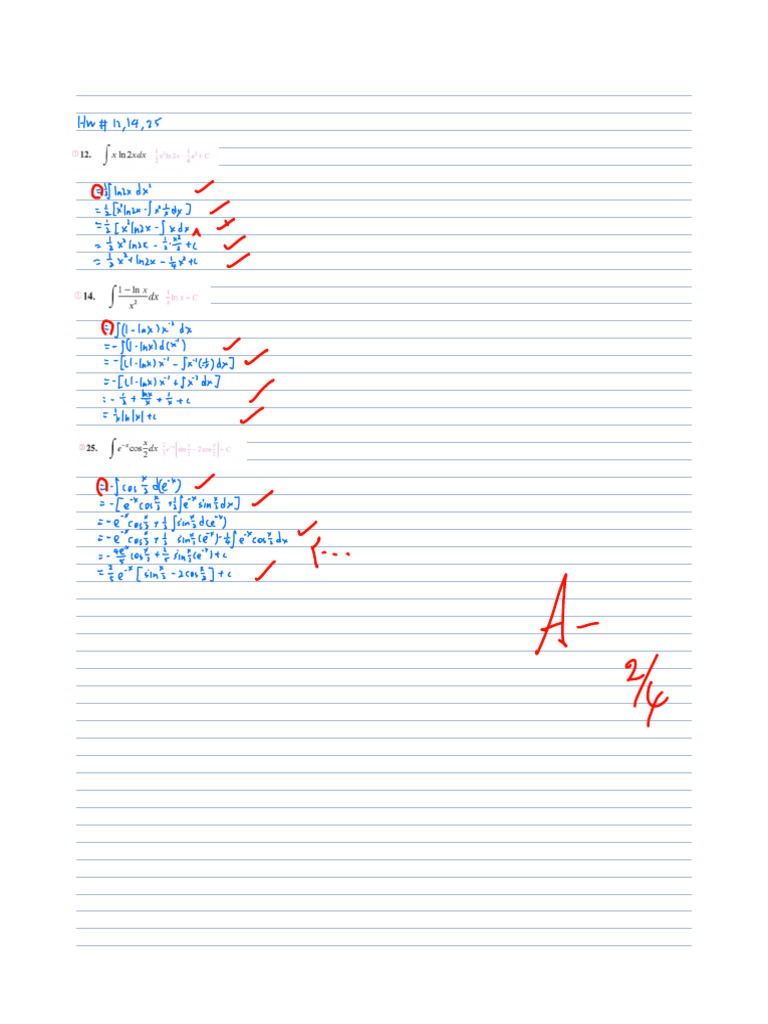 Hw # 12,14,25
① 12. ∫ x ln 2x dx  1/2 x² ln 2x - 1/4 x² + C
= 1/2 ∫ ln2x dx²
= 1/2 [x² ln2x - ∫ x² 1/x dx]
= 1/2 [x² ln2x - ∫ x dx
= 1/2 x² ln2x - 1/2 · x²/2 + c
= 1/2 x² + ln2x - 1/4 x² + c
① 14. ∫ (1 - ln x)/x² dx  1/x ln x + C
= ∫ (1 - lnx) x⁻² dx
= - ∫ (1 - lnx) d(x⁻¹)
= - [(1 - lnx) x⁻¹ - ∫ x⁻¹ (-1/x) dx]
= - [(1 - lnx) x⁻¹ + ∫ x⁻² dx]
= - 1/x + lnx/x + 1/x + c
= 1/x ln|x| + c
② 25. ∫ e⁻ˣ cos x/2 dx  2/5 e⁻ˣ [sin x/2 - 2 cos x/2] + C
= - ∫ cos x/2 d(e⁻ˣ)
= - [e⁻ˣ cos x/2 + 1/2 ∫ e⁻ˣ sin x/2 dx]
= - e⁻ˣ cos x/2 + 1/2 ∫ sin x/2 d(e⁻ˣ)
= - e⁻ˣ cos x/2 + 1/2 sin x/2 (e⁻ˣ) - 1/4 ∫ e⁻ˣ cos x/2 dx
cos x/2 + 2/5 sin x/2 (e⁻ˣ) + c
= 2/5 e⁻ˣ [sin x/2 - 2 cos x/2] + c
A-
2/4